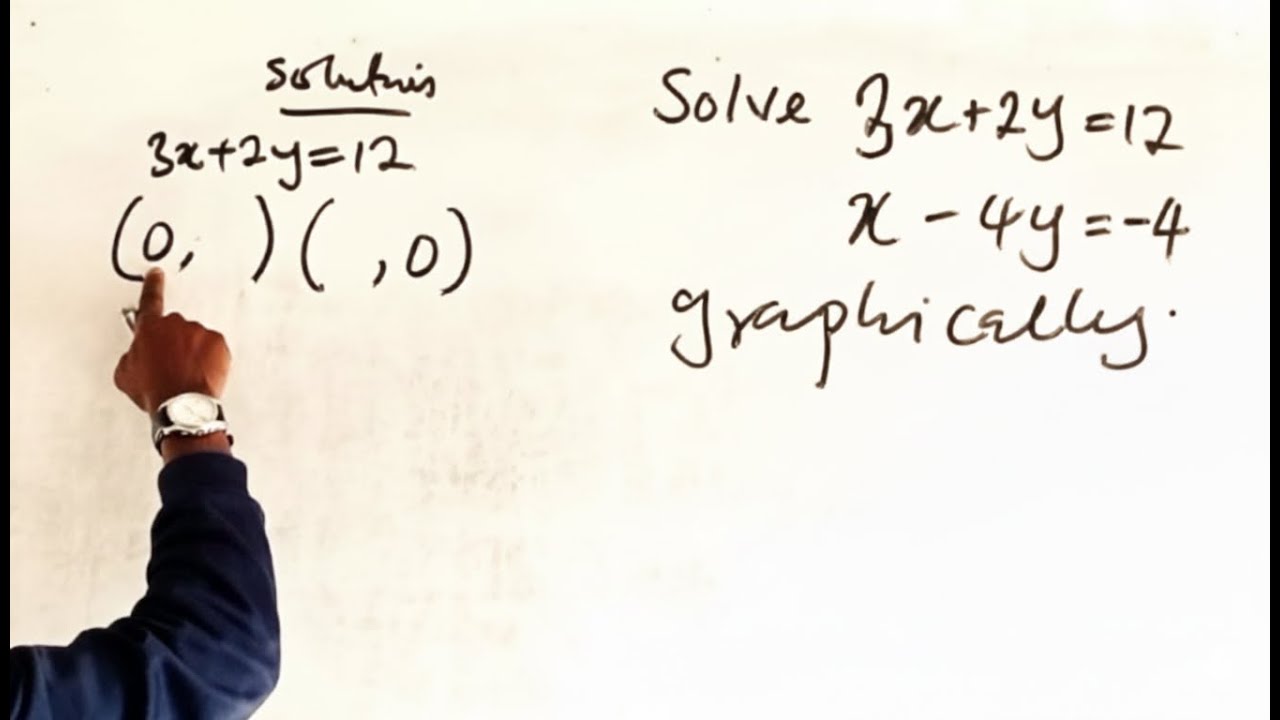 Solutnis
3x+2y=12
(0, ) ( ,0)
Solve 3x+2y=12
x-4y=-4
graphically.